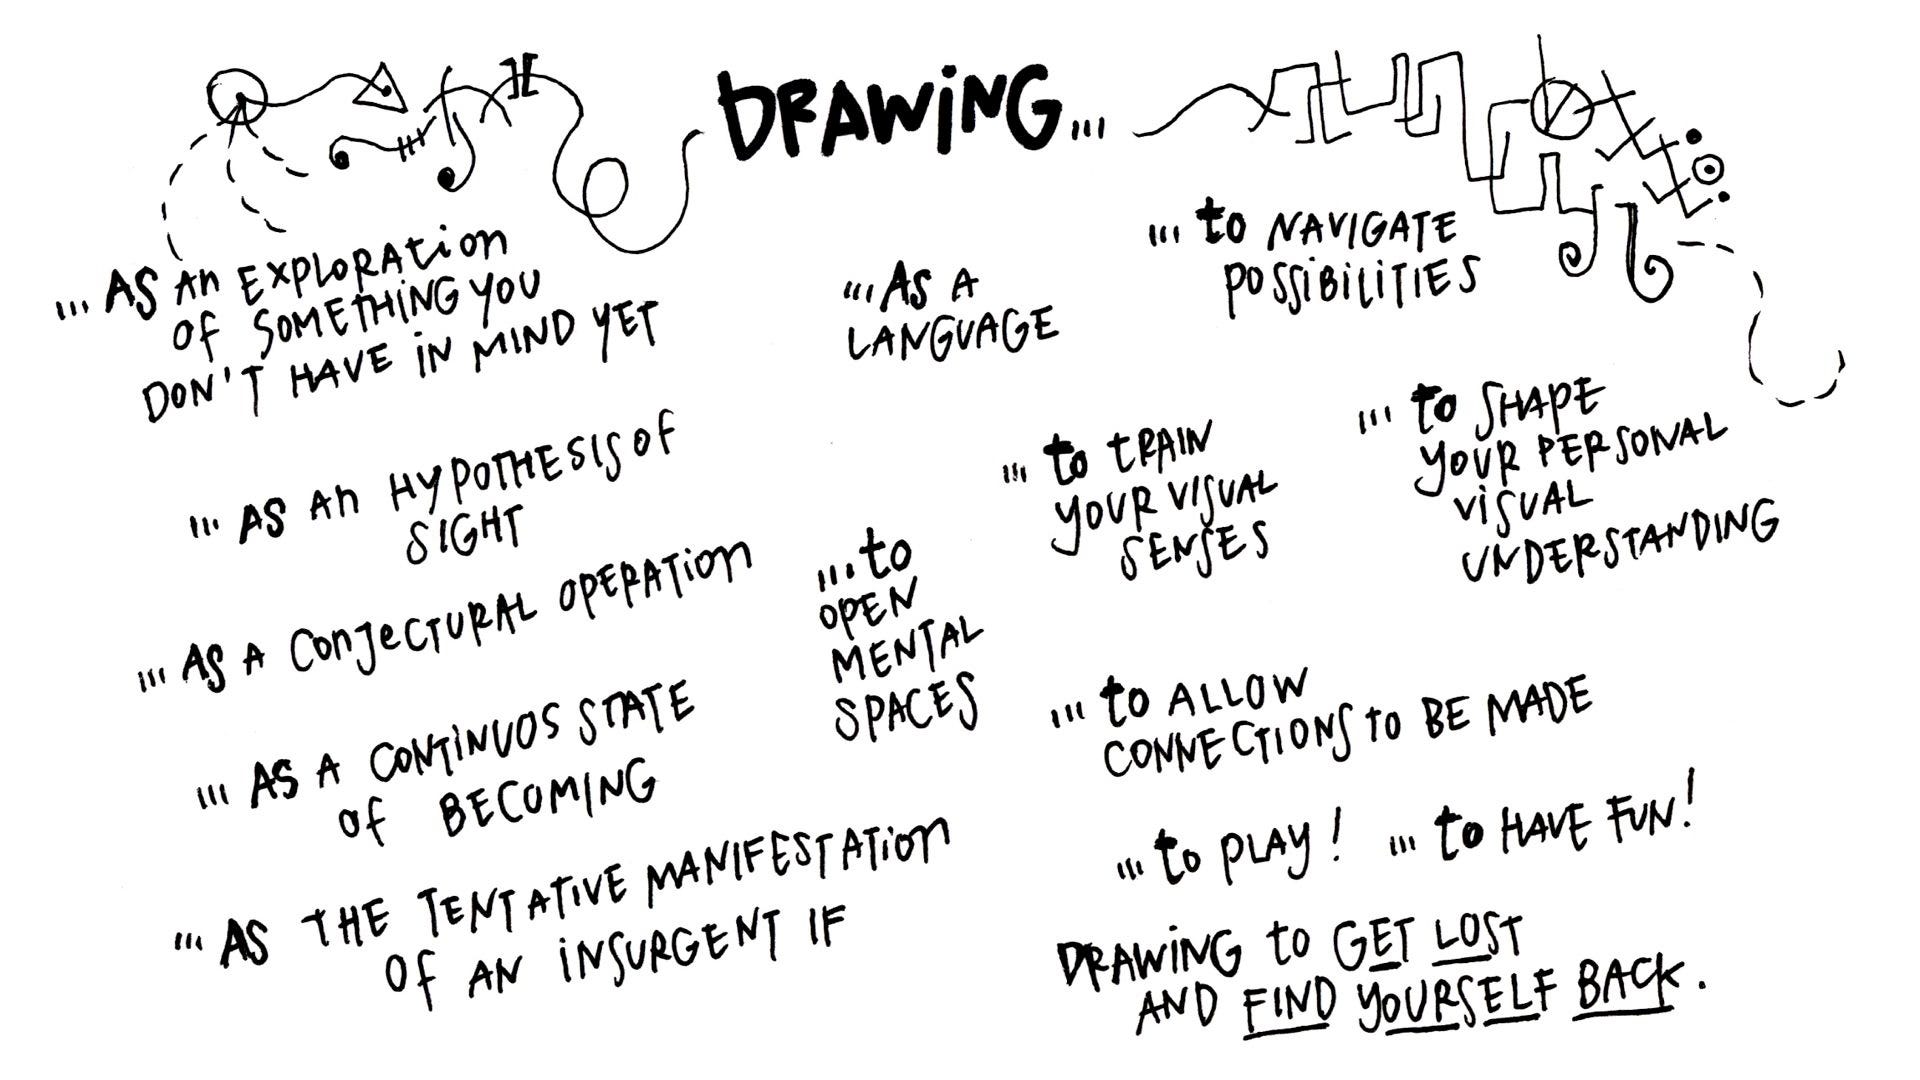 DRAWING...
... AS AN EXPLORATION
OF SOMETHING YOU
DON'T HAVE IN MIND YET
... AS AN HYPOTHESIS OF
SIGHT
... AS A CONJECTURAL OPERATION
... AS A CONTINUOS STATE
OF BECOMING
... AS THE TENTATIVE MANIFESTATION
OF AN INSURGENT IF
... AS A
LANGUAGE
... to
OPEN
MENTAL
SPACES
... to NAVIGATE
POSSIBILITIES
... to TRAIN
YOUR VISUAL
SENSES
... to SHAPE
YOUR PERSONAL
VISUAL
UNDERSTANDING
... to ALLOW
CONNECTIONS to BE MADE
... to PLAY! ... to HAVE FUN!
DRAWING to GET LOST
AND FIND YOURSELF BACK.